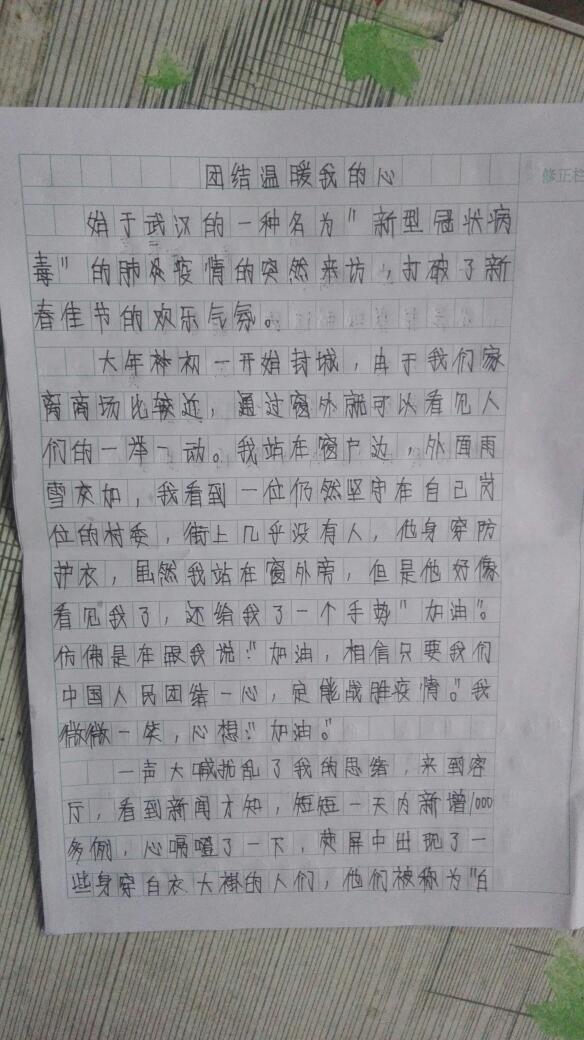 团结温暖我的心
修正栏
始于武汉的一种名为"新型冠状病
毒"的肺炎疫情的突然来访,打破了新
春佳节的欢乐气氛。
大年初一开始封城,由于我们家
离商场比较近,通过窗外就可以看见人
们的一举一动。我站在窗户边,外面雨
雪交加,我看到一位仍然坚守在自己岗
位的村委,街上几乎没有人,他身穿防
护衣,虽然我站在窗外旁,但是他好像
看见我了,还给我了一个手势"加油"。
仿佛是在跟我说:"加油,相信只要我们
中国人民团结一心,定能战胜疫情。"我
微微一笑,心想:"加油。"
一声大喊扰乱了我的思绪,来到客
厅,看到新闻才知,短短一天内新增1000
多例,心嗝噔了一下,荧屏中出现了一
些身穿白衣大褂的人们,他们被称为"白